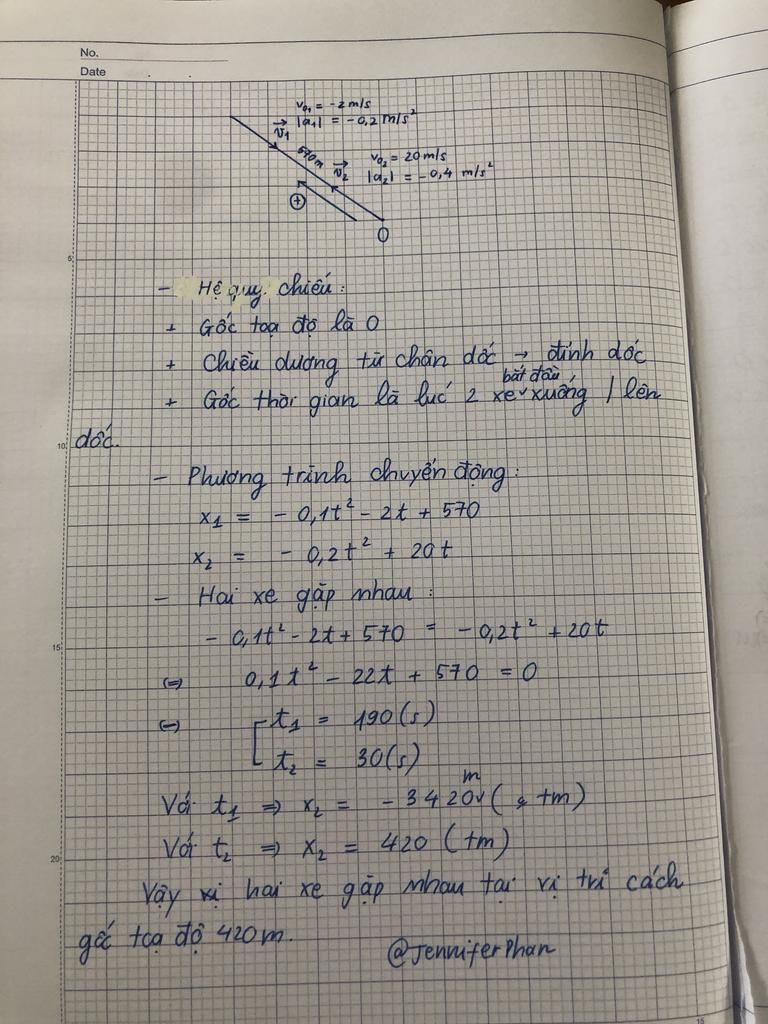 No.
Date
v₀₁ = -2 m/s
v₁ |a₁| = -0,2 m/s²
570m
v₂ v₀₂ = 20 m/s
|a₂| = -0,4 m/s²
+
O
5
- Hệ quy chiếu :
+ Gốc toạ độ là O
+ Chiều dương từ chân dốc → đỉnh dốc
+ Gốc thời gian là lúc 2 xe bắt đầu xuống / lên
10 dốc.
- Phương trình chuyển động :
x₁ = - 0,1t² - 2t + 570
x₂ = - 0,2t² + 20t
- Hai xe gặp nhau :
15 - 0,1t² - 2t + 570 = -0,2t² + 20t
(=) 0,1t² - 22t + 570 = 0
(=) [ t₁ = 190 (s)
t₂ = 30 (s)
Với t₁ => x₂ = -3420 m ( tm)
20 Với t₂ => x₂ = 420 (tm)
Vậy hai xe gặp nhau tại vị trí cách
gốc toạ độ 420m.
@JenniferPhan
15